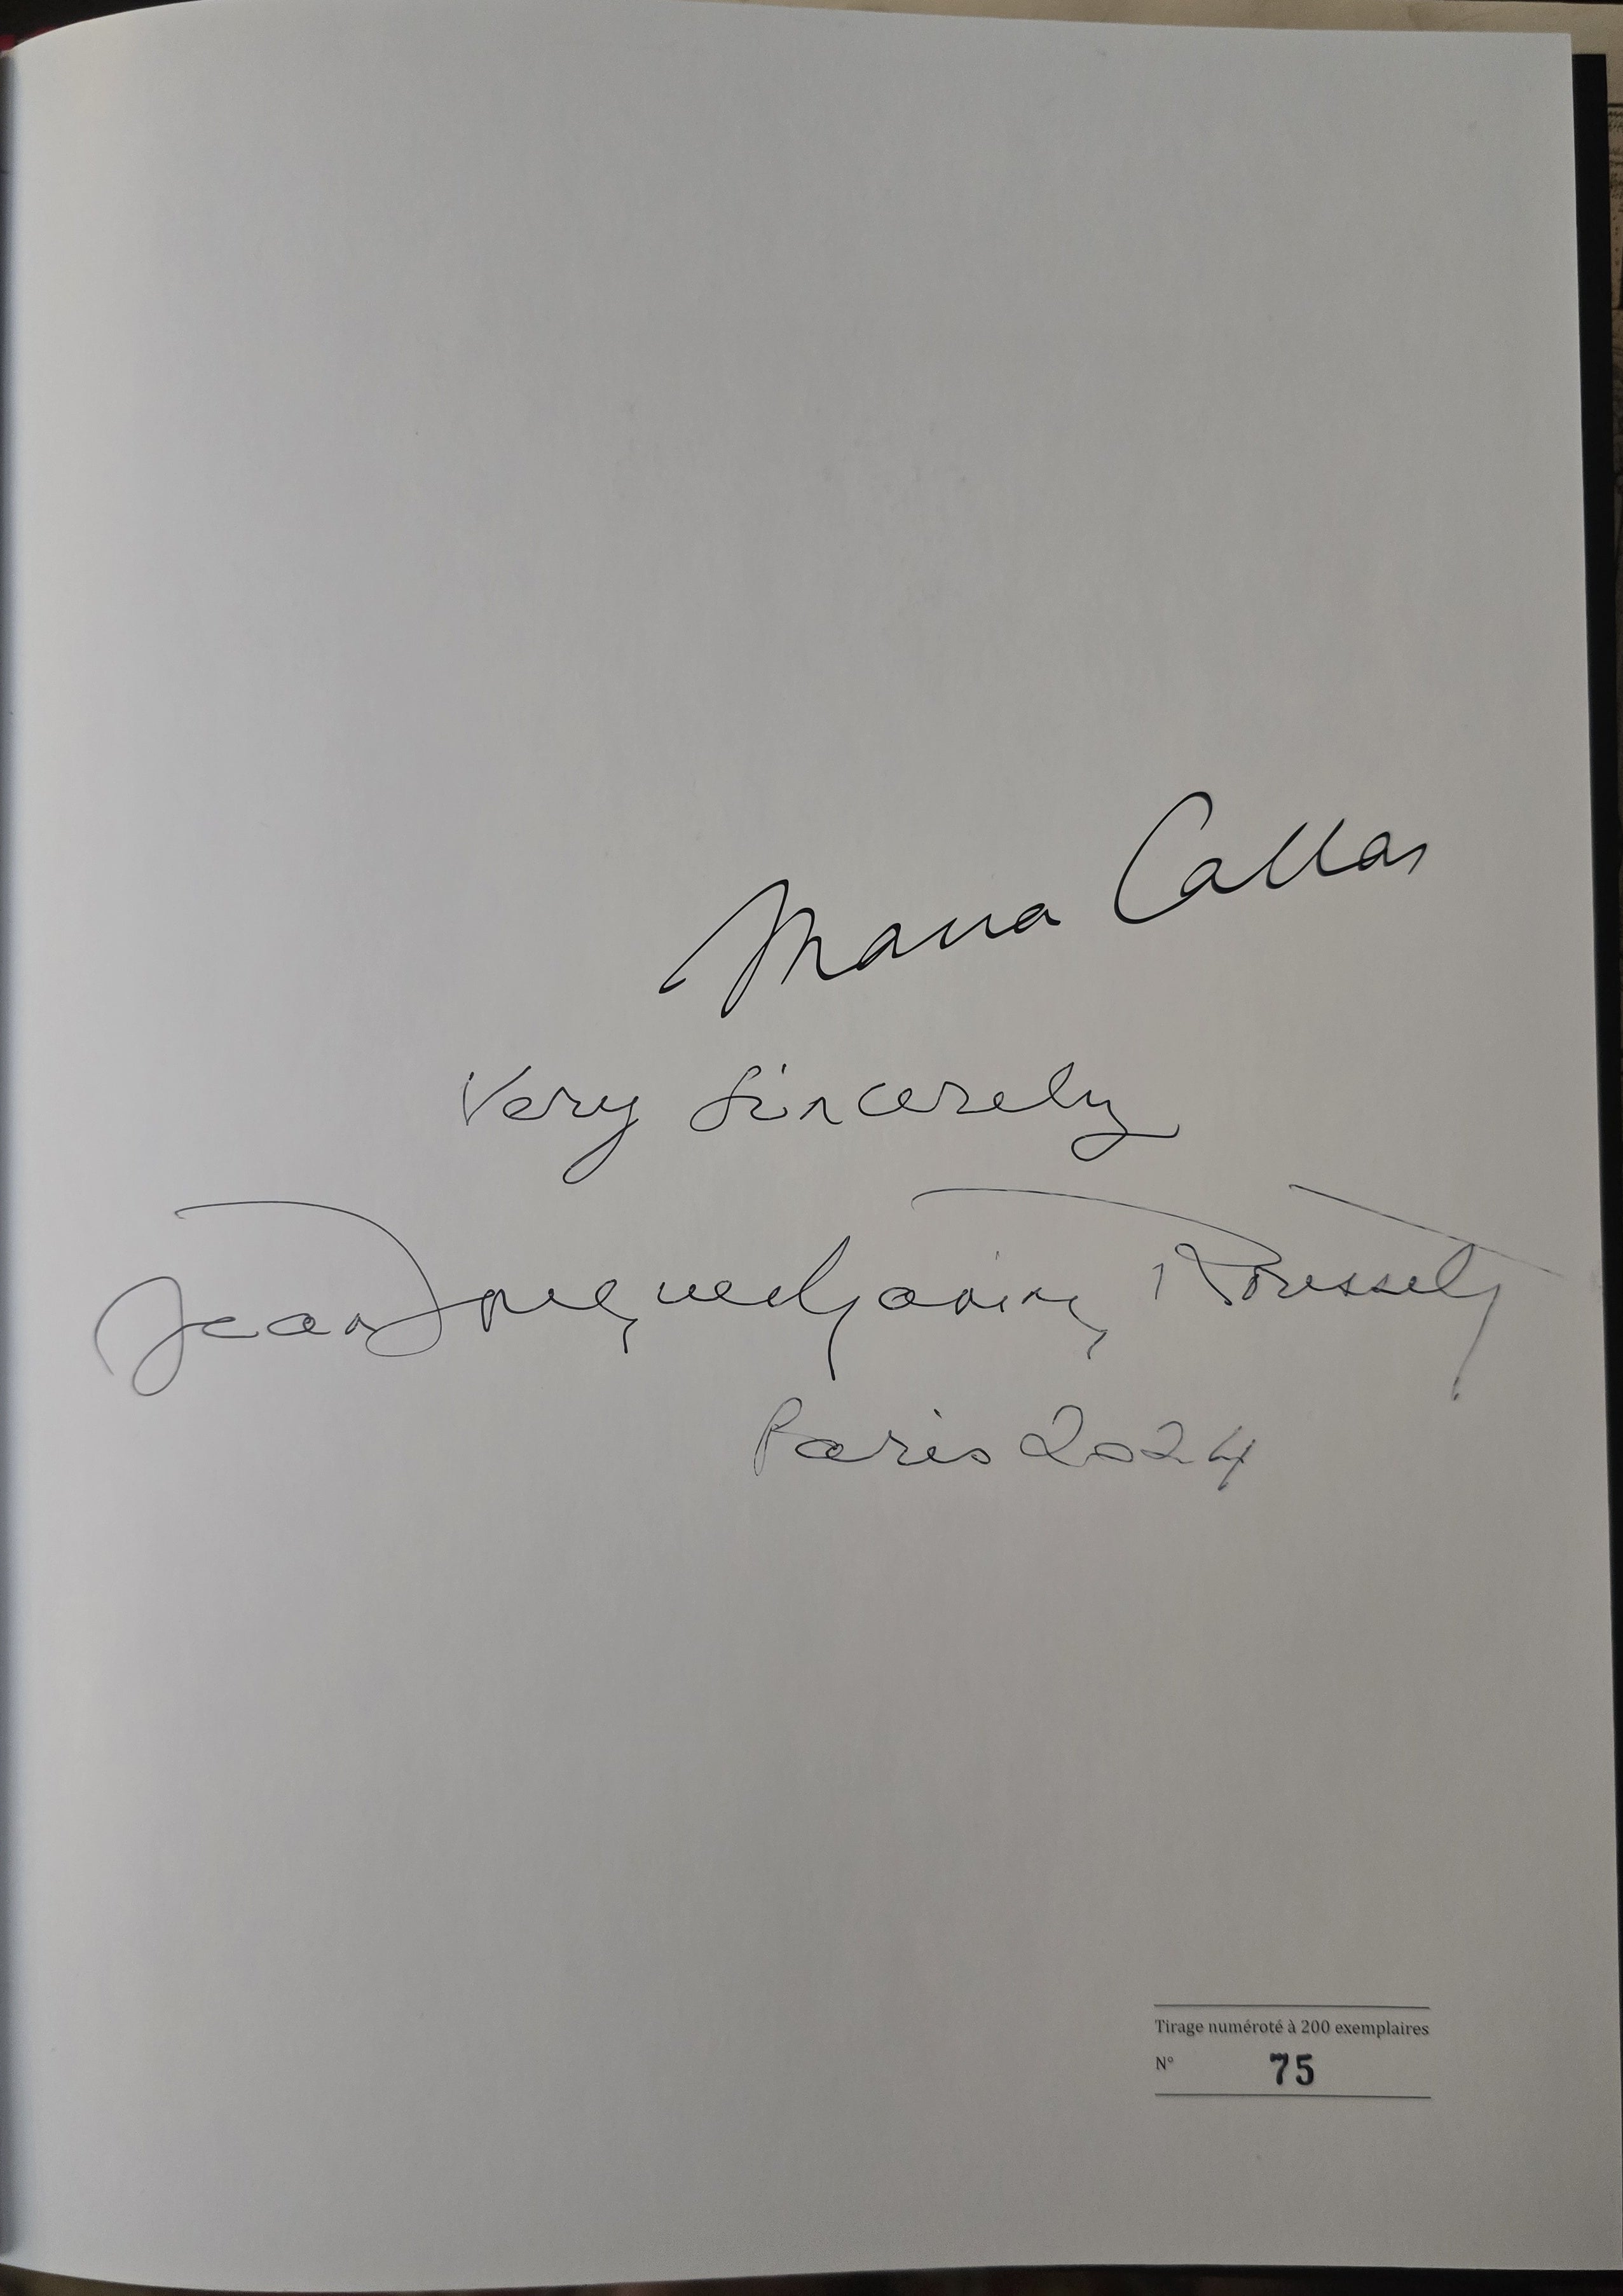 Maria Callas
Very Sincerely
Jean Jacques Hanine Roussel
Paris 2024
Tirage numéroté à 200 exemplaires
N° 75